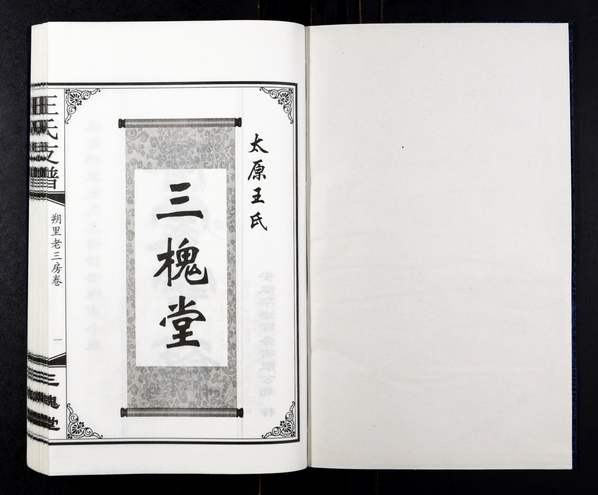 太原王氏
三槐堂
王氏支譜
朔里老三房卷
一
三槐堂